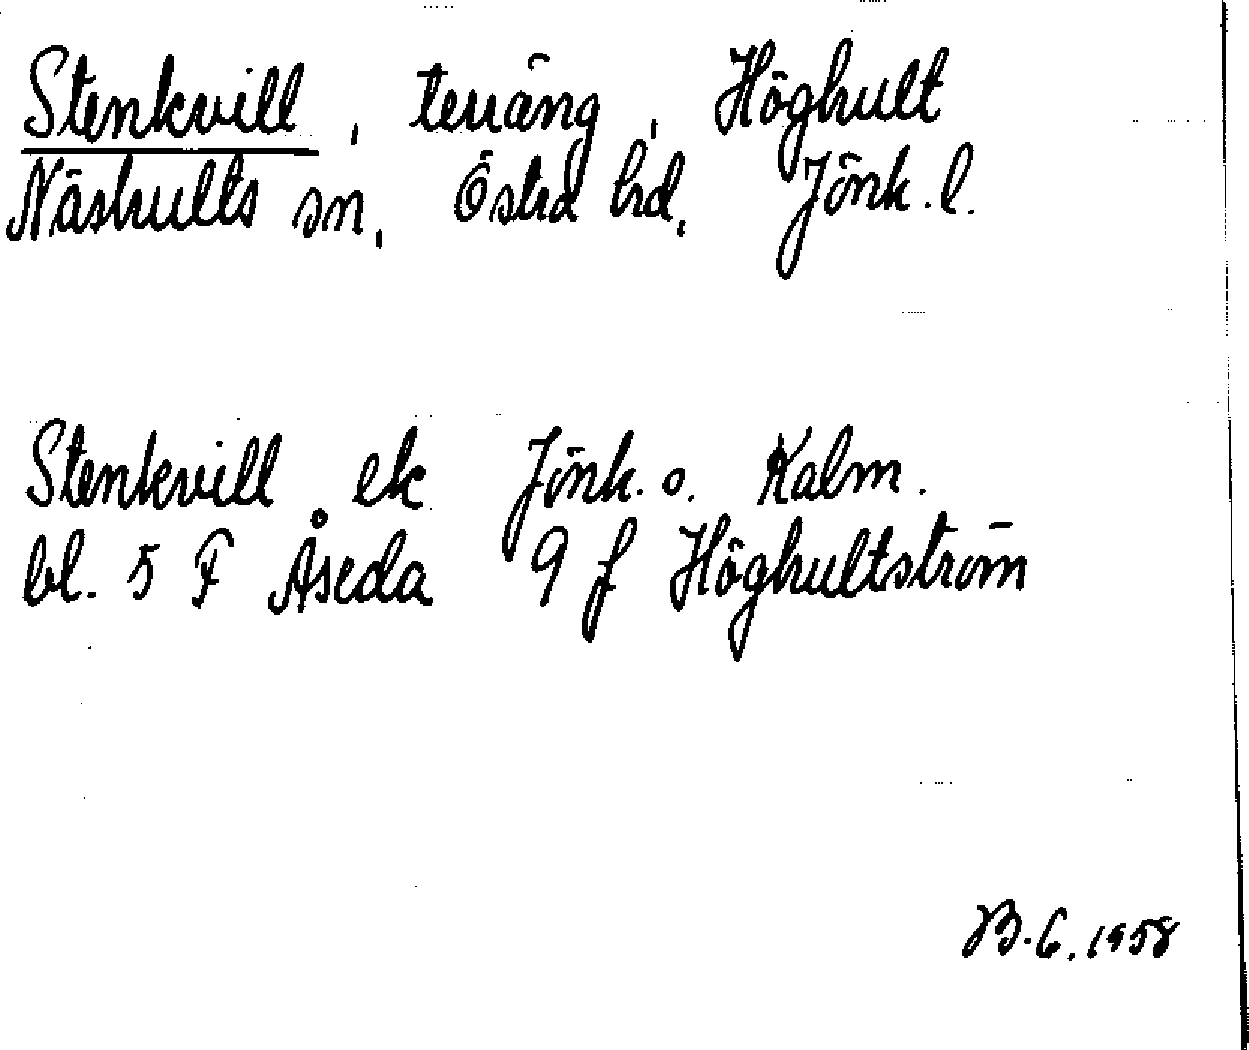 Stenkvill, terräng, Höghult
Näshults sn, Östra hd, Jönk. l.
Stenkvill ek Jönk. o. Kalm.
bl. 5 F Åseda 9 f Höghultström
B. G. 1958